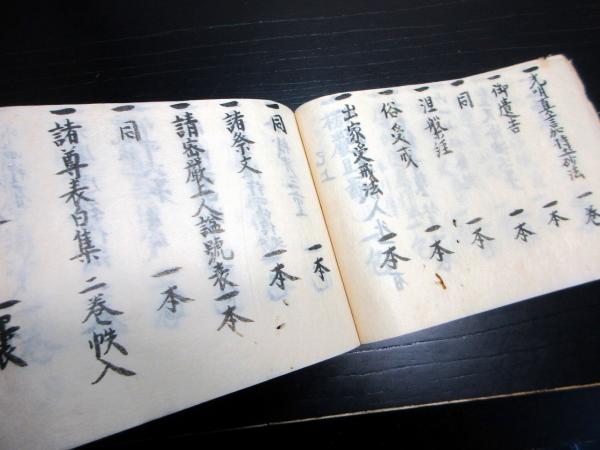 一光明真言土砂法 一巻
一御遺告 一本
一同 一本
一涅槃経 一本
一俗受戒 一本
一出家受戒法 一本
一同 一本
一諸祭文 一本
一請密厳上人諡號表 一本
一同 一本
一諸尊表白集 二巻帙入